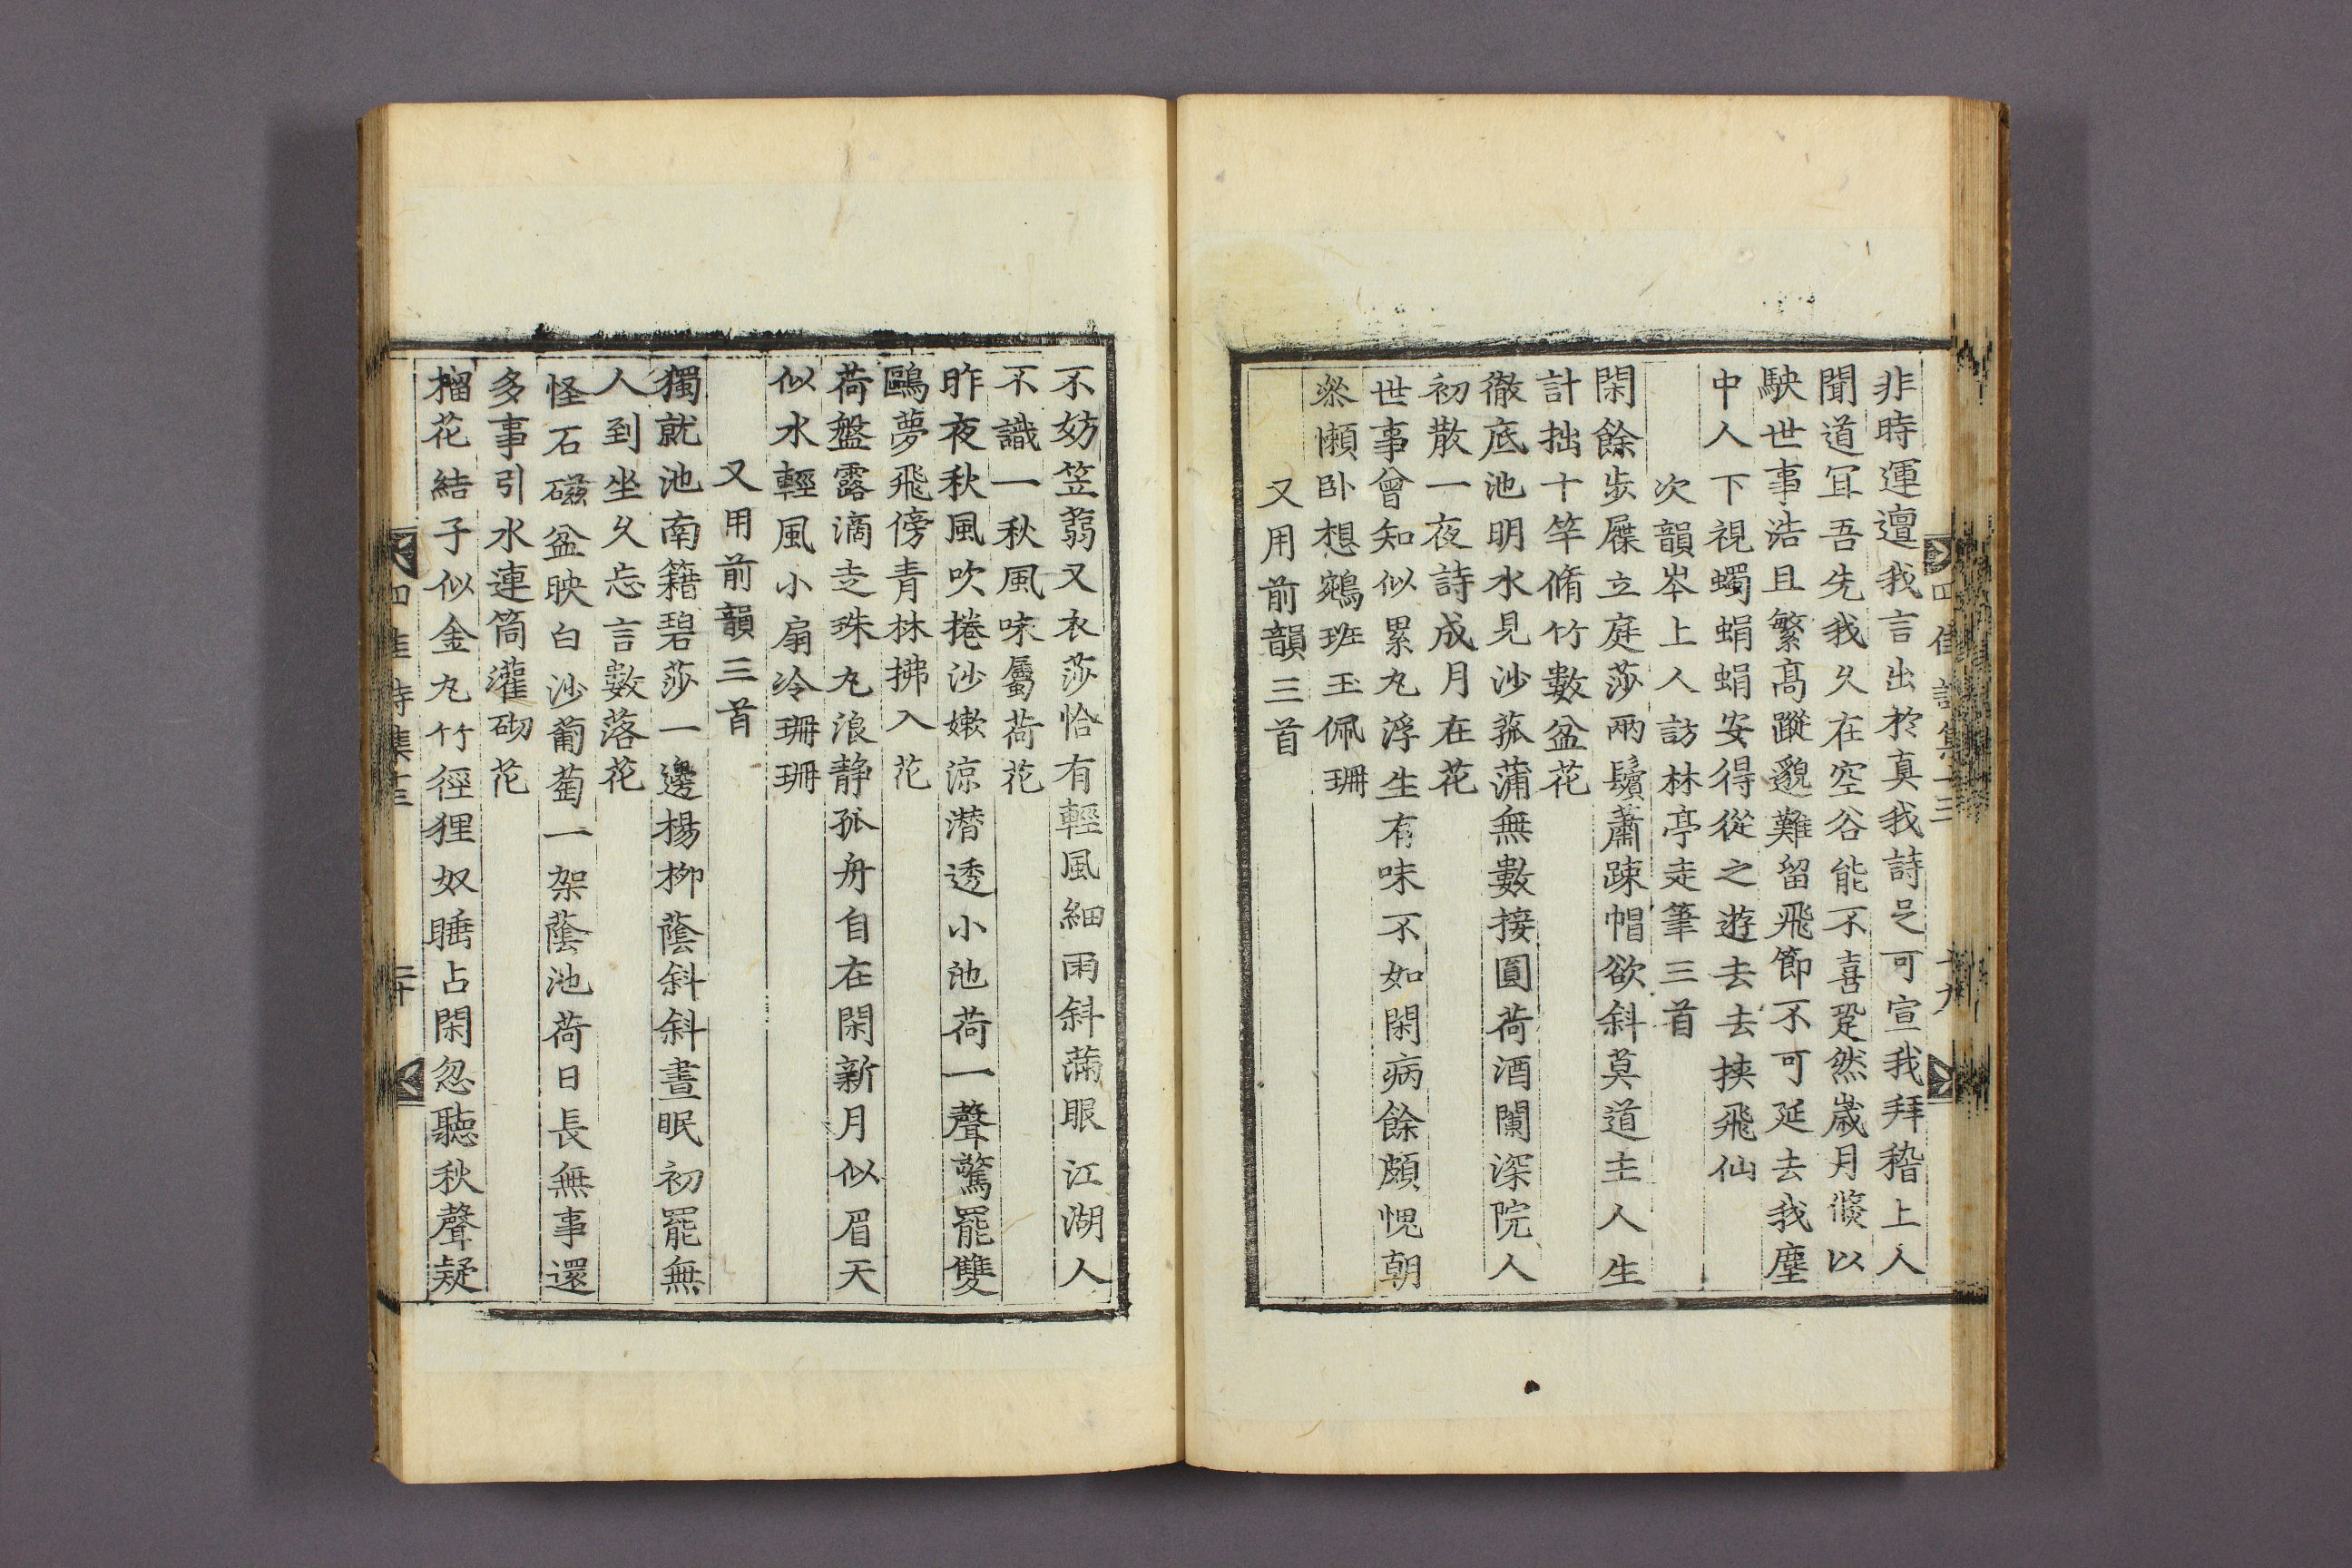 非時運邅我言出於真我詩足可宣我拜稽上人
聞道冝吾先我久在空谷能不喜跫然歲月倐以
駚世事浩且繁髙蹤邈難留飛節不可延去我塵
中人下視蠋蜎蜎安得從之遊去去挾飛仙
次韻岑上人訪林亭走筆三首
閑餘步屧立庭莎兩鬢蕭踈帽欲斜莫道主人生
計拙十竿脩竹數盆花
徹底池明水見沙菰蒲無數接圓荷酒闌深院人
初散一夜詩成月在花
世事曾知似累丸浮生有味不如閑病餘頗愧朝
叅懶卧想鵷班玉佩珊
又用前韻三首
四佳詩集十三
十九
不妨笠蒻又衣莎恰有輕風細雨斜滿眼江湖人
不識一秋風味屬荷花
昨夜秋風吹捲沙嫰涼潛透小池荷一聲驚罷雙
鷗夢飛傍青林拂入花
荷盤露滴走珠丸浪静孤舟自在閑新月似眉天
似水輕風小扇冷珊珊
又用前韻三首
獨就池南籍碧莎一邊楊柳蔭斜斜晝眠初罷無
人到坐久忘言數落花
怪石磁盆映白沙葡萄一架蔭池荷日長無事還
多事引水連筒灌砌花
榴花結子似金丸竹徑狸奴睡占閑忽聽秋聲疑
四佳詩集十三
二十